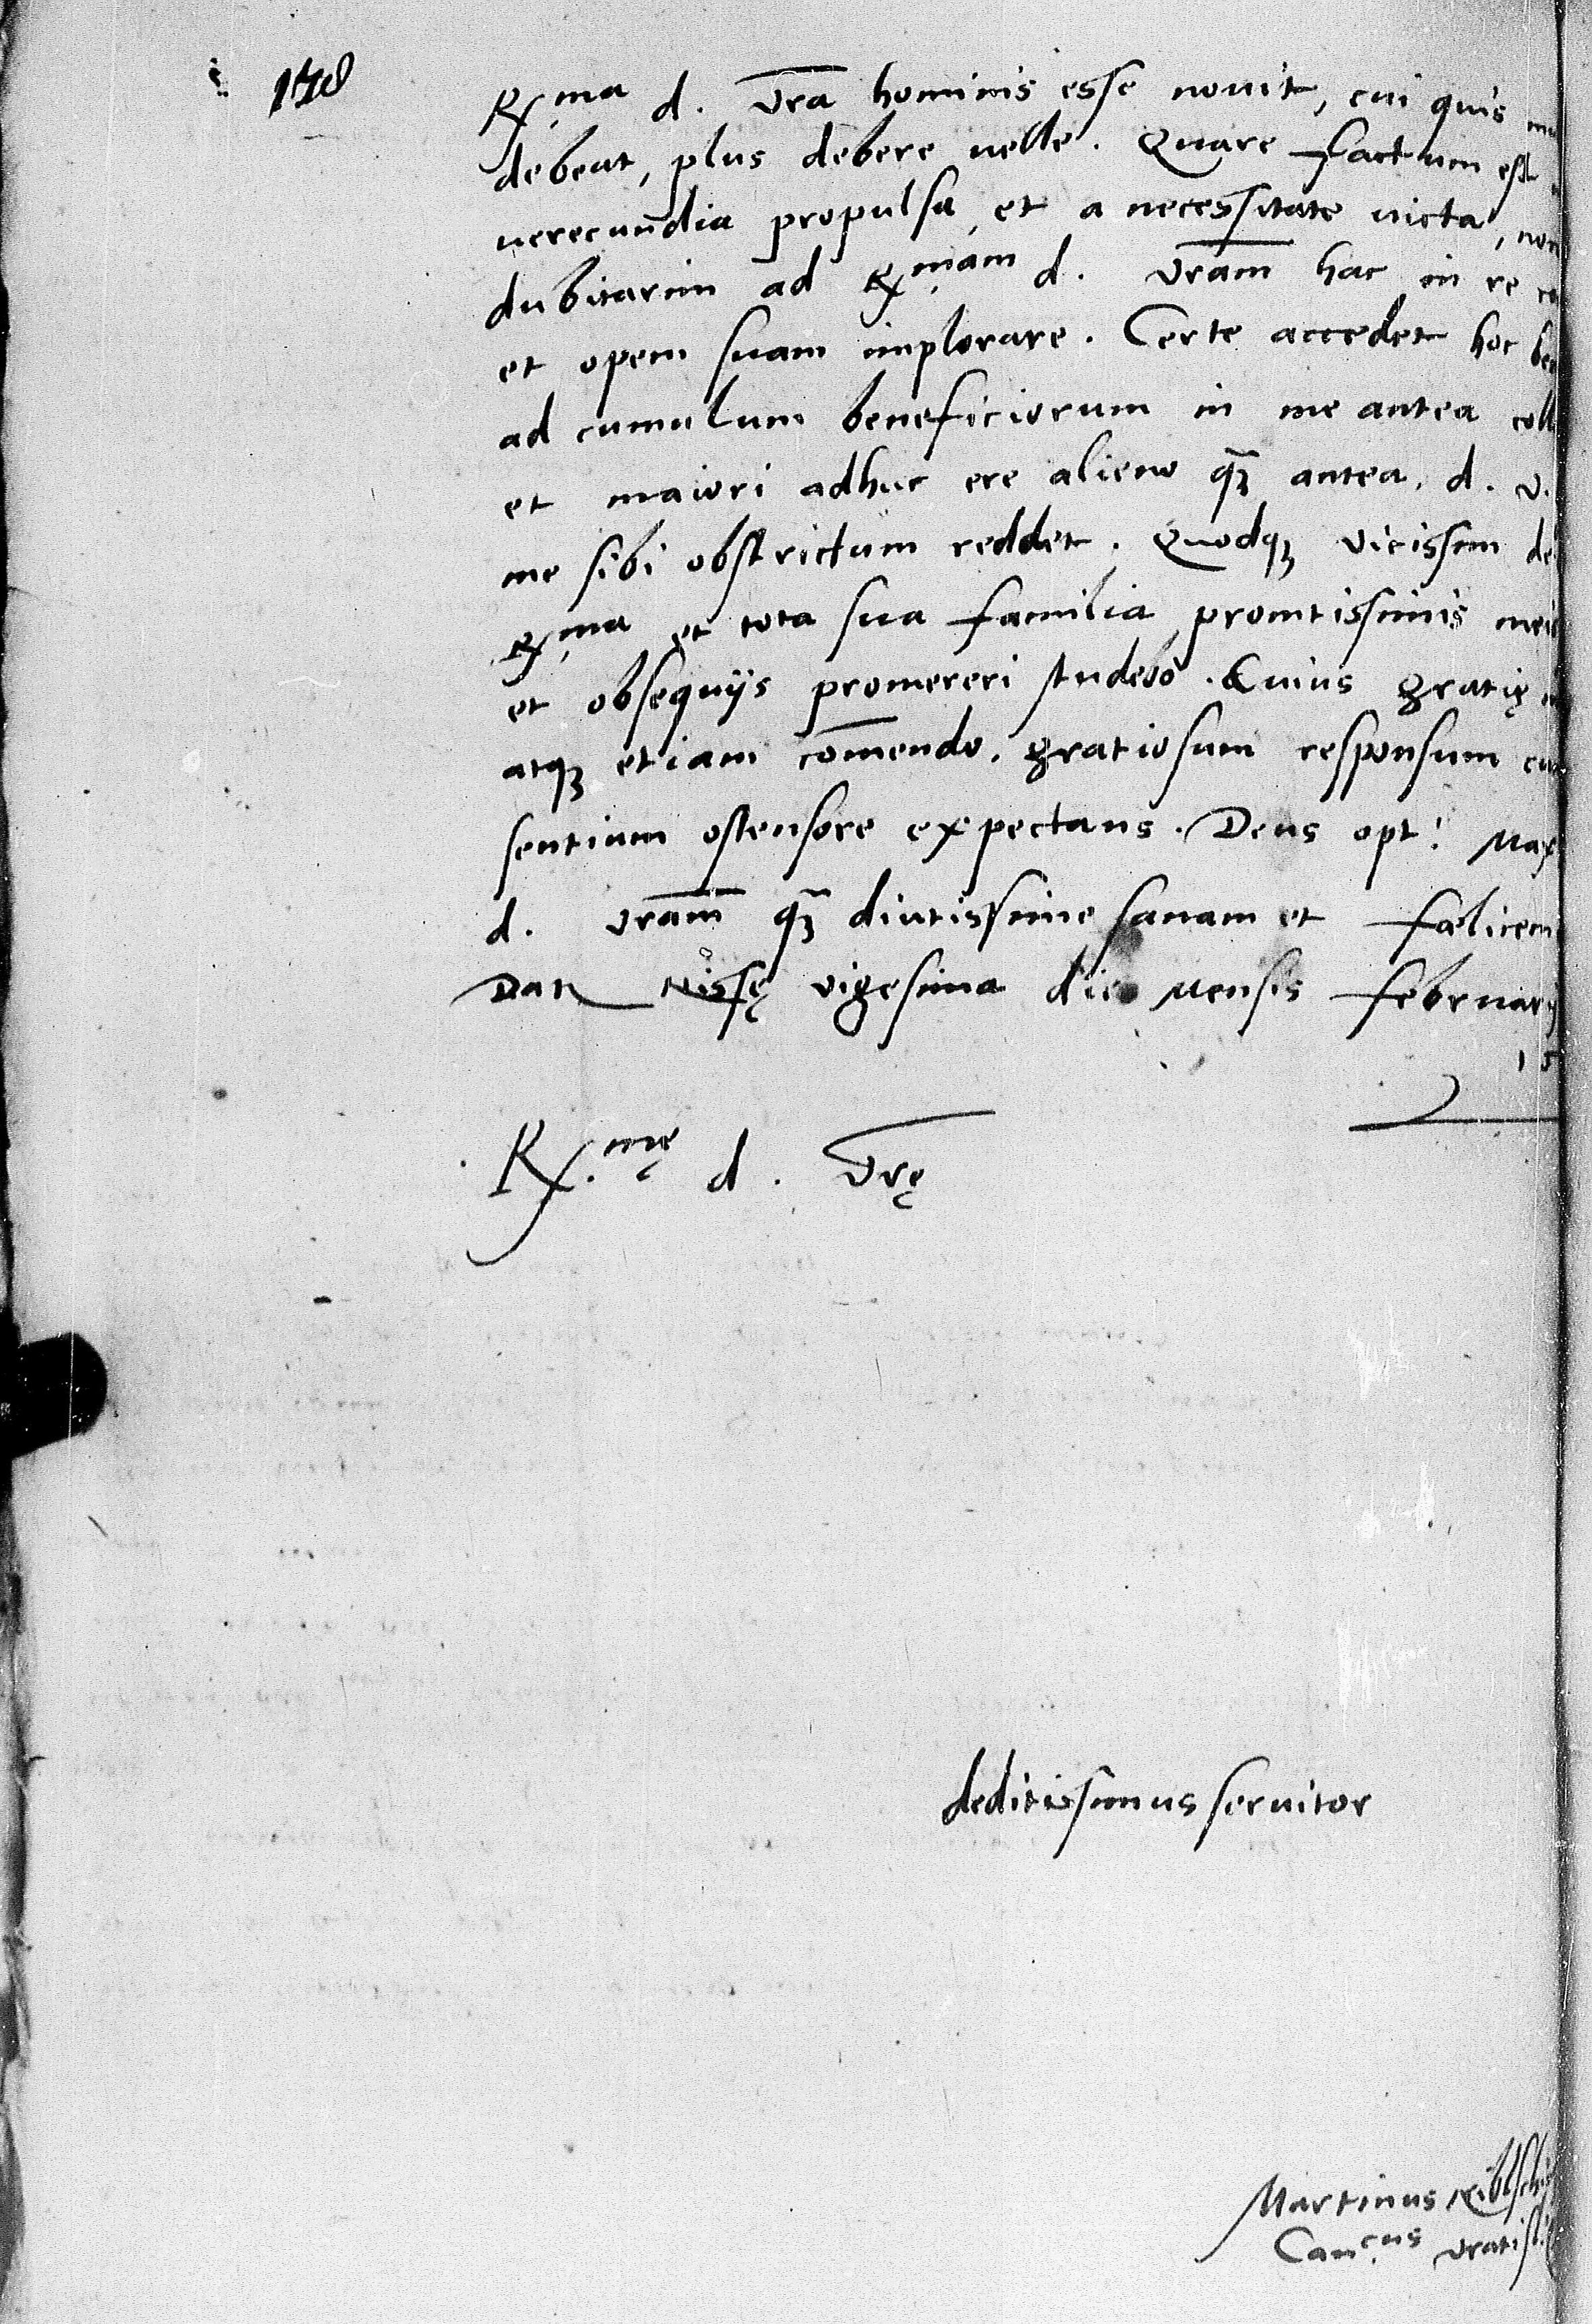 178
Rx.ma d. vr̄a hominis esse nouit, cui quis
debeat, plus debere uelle. Quare factum est
uerecundia propulsa, et a necessitate uicta, non
dubitarim ad Rx.mam d. vr̄am hac in re
et opem suam implorare. Certe accedet hoc
ad cumulum beneficiorum in me antea
et maiori adhuc ere alieno qꝫ̄ antea, d. v.
me sibi obstrictum reddet. Quodqꝫ vicissim
Rx.ma et tota sua familia promtissimis
et obsequijs promereri studebo. Cuius gratię
atqꝫ etiam com̄endo, gratiosum responsum
sentium ostensore expectans. Deus opt: Max
d. vr̄am qꝫ̄ diutissime sanam et fælicem
Dat Nissę vigesima die Mensis februarij
15
Rx.mę d. vr̄ę
deditissimus seruitor
Martinus
Cancus